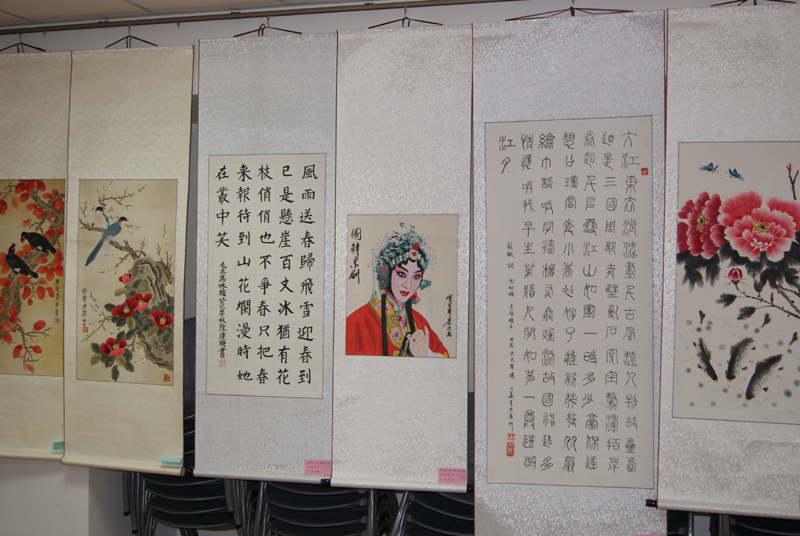 風雨送春歸飛雪迎春到
已是懸崖百丈冰猶有花
枝俏俏也不爭春只把春
來報待到山花爛漫時她
在叢中笑
毛主席咏梅癸巳年秋
國粹京劇
大江東去浪淘盡千古風流人物故壘西
邊是三國周郎赤壁亂石穿空驚濤拍岸
卷起千堆雪江山如畫一時多少豪傑遙
想公瑾當年小喬初嫁了雄姿英發羽扇
綸巾談笑間檣櫓灰飛煙滅故國神遊多
情應笑我早生華髮人間如夢一尊還酹
江月
蘇軾 詞 念奴嬌 赤壁懷古